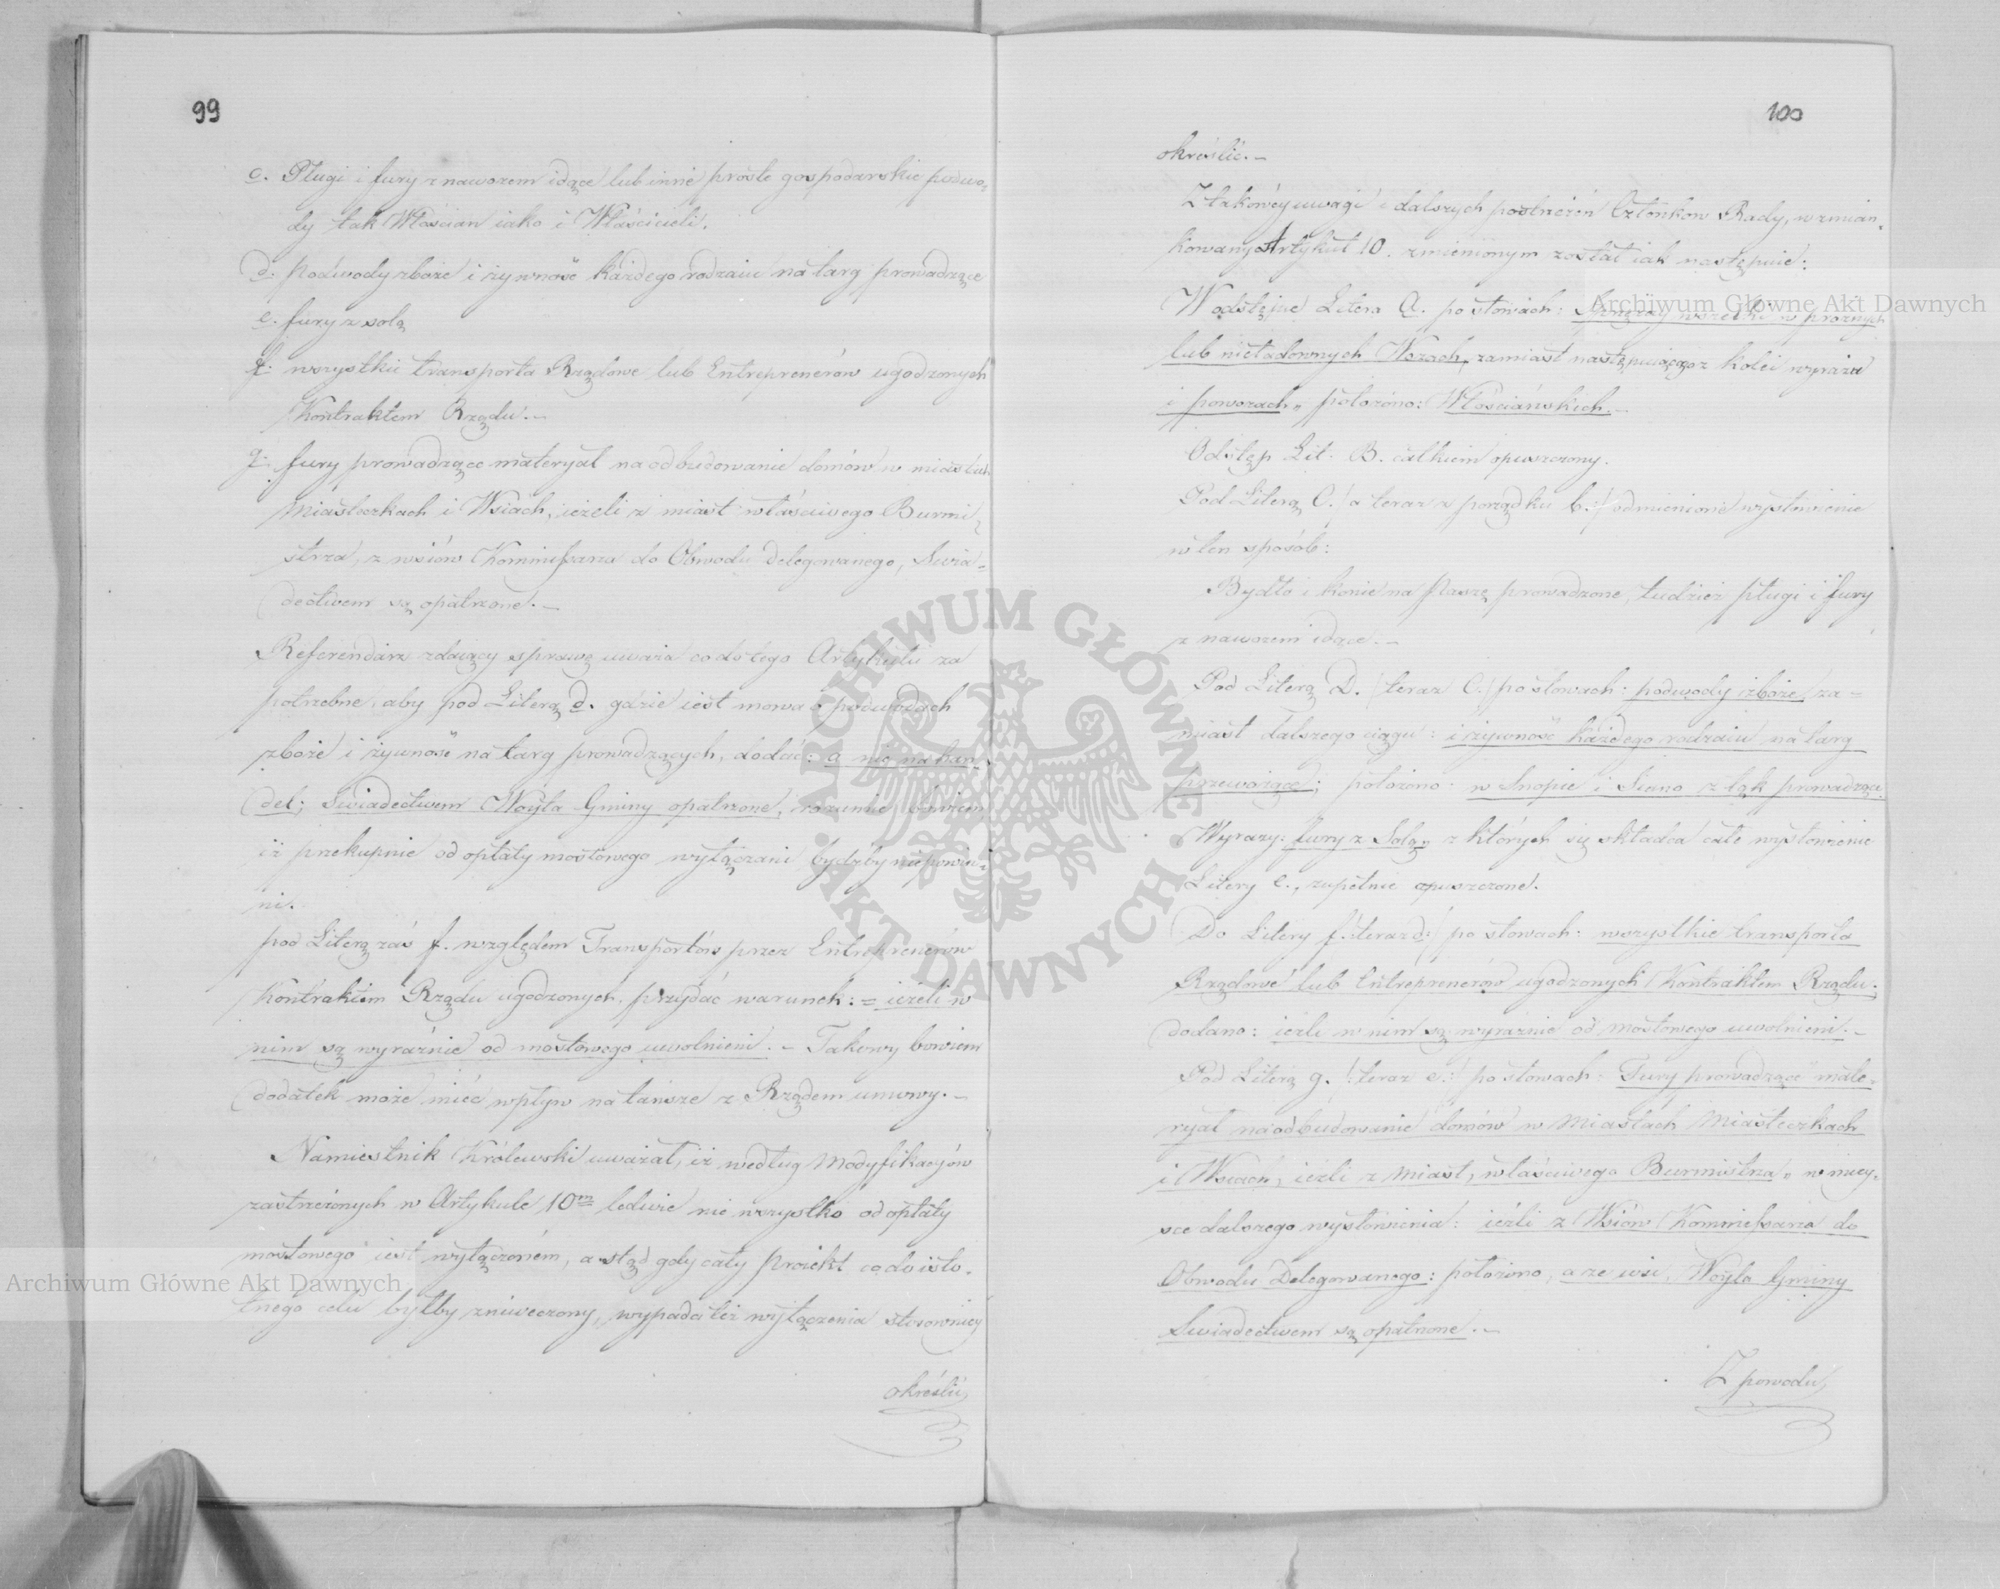 99
c. Pługi i fury z nawozem idące lub inne proste gospodarskie podwo-
dy tak Włościan iako i Właścicieli.
d. podwody zboże i żywność każdego rodzaiu na targ prowadzące
e. fury z solą
f. wszystkie transporta Rządowe lub Entreprenerów ugodzonych
Kontraktem Rządu.—
g. fury prowadzące materyał na odbudowanie domów w miastach
Miasteczkach i Wsiach, ieżeli z miast właściwego Burmi-
strza, z wsiów Kommissarza do Obwodu delegowanego, Swia-
dectwem są opatrzone.—
Referendarz zdaiący sprawę uważa co do tego Artykułu za
potrzebne, aby pod Literą d. gdzie iest mowa o podwodach
zboże i żywność na targ prowadzących, dodać: a nie na han-
del; Swiadectwem Woyta Gminy opatrzone, rozumie bowiem
iż przekupnie od opłaty mostowego wyłączani bydźby niepowin-
ni.
pod Literą zaś f. względem Transportów przez Entreprenerów
Kontraktem Rządu ugodzonych, przydać warunek: = ieżeli w
nim są wyraźnie od mostowego uwolnieni.— Takowy bowiem
dodatek może mieć wpływ na tańsze z Rządem umowy.—
Namiestnik Królewski uważał, iż według Modyfikacyów
zastrzeżonych w Artykule 10m ledwie nie wszystko od opłaty
mostowego iest wyłączoném, a stąd gdy cały proiekt co do isto-
tnego celu byłby zniweczony, wypada też wyłączenia stosowniey
określić
100
określić.—
Z takowey uwagi i dalszych postrzeżeń Członkow Rady, wzmian-
kowany Artykuł 10. zmienionym został iak następuie:
W odstępie Litera A. po słowach: Sprzężay wszelki w prożnych
lub nieładownych Wozach, zamiast następuiącego z kolei wyrazu
i powozach, położono: Włościańskich.—
Odstęp Lit. B. całkiem opuszczony.
Pod Literą C. /: a teraz z porządku b. :/ odmienione wysłowienie
w ten sposób:
Bydło i konie na Paszę prowadzone, tudzież pługi i fury
z nawozem idące.—
Pod Literą D. /: teraz C. :/ po słowach: podwody zboże, za-
miast dalszego ciągu: i żywność każdego rodzaiu na targ
przewożące; położono: w Snopie i Siano z łąk prowadzące.
Wyrazy: fury z Solą, z których się składa całe wysłowienie
Litery e., zupełnie opuszczone.
Do Litery f. /: teraz d :/ po słowach: wszystkie transporta
Rządowe lub Entreprenerów ugodzonych Kontraktem Rządu;
dodano: ieżeli w nim są wyraźnie od mostowego uwolnieni.—
Pod Literą g. /: teraz e. :/ po słowach: Fury prowadzące mate-
ryał na odbudowanie domów w Miastach Miasteczkach
i Wsiach, ieżeli z Miast, właściwego Burmistrza, w miey-
sce dalszego wysłowienia: ieżeli z Wsiów Kommissarza do
Obwodu Delegowanego: położono, a ze wsi, Woyta Gminy
Swiadectwem są opatrzone.—
Z powodu
Archiwum Główne Akt Dawnych
Archiwum Główne Akt Dawnych
ARCHIWUM GŁÓWNE
AKT DAWNYCH